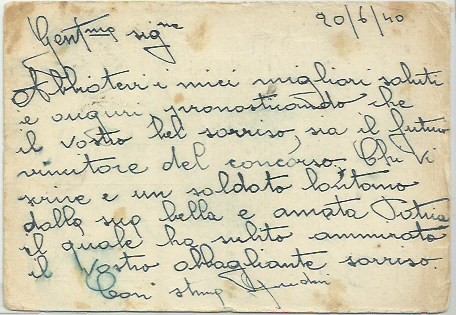 20/6/40
Gent.mo sig.ne
Abbiatevi i miei migliori saluti
e auguri pronosticando che
il vostro bel sorriso, sia il futuro
vincitore del concorso, Chi Vi
scrive e un soldato lontano
dalla sua bella e amata Patria
il quale ha subito ammirato
il Vostro abbagliante sorriso.
Con stima